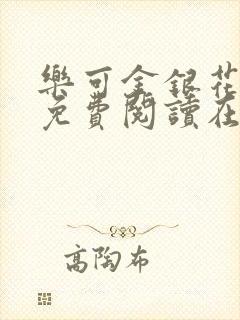 樂可金銀花
免費閱讀在
高陶布